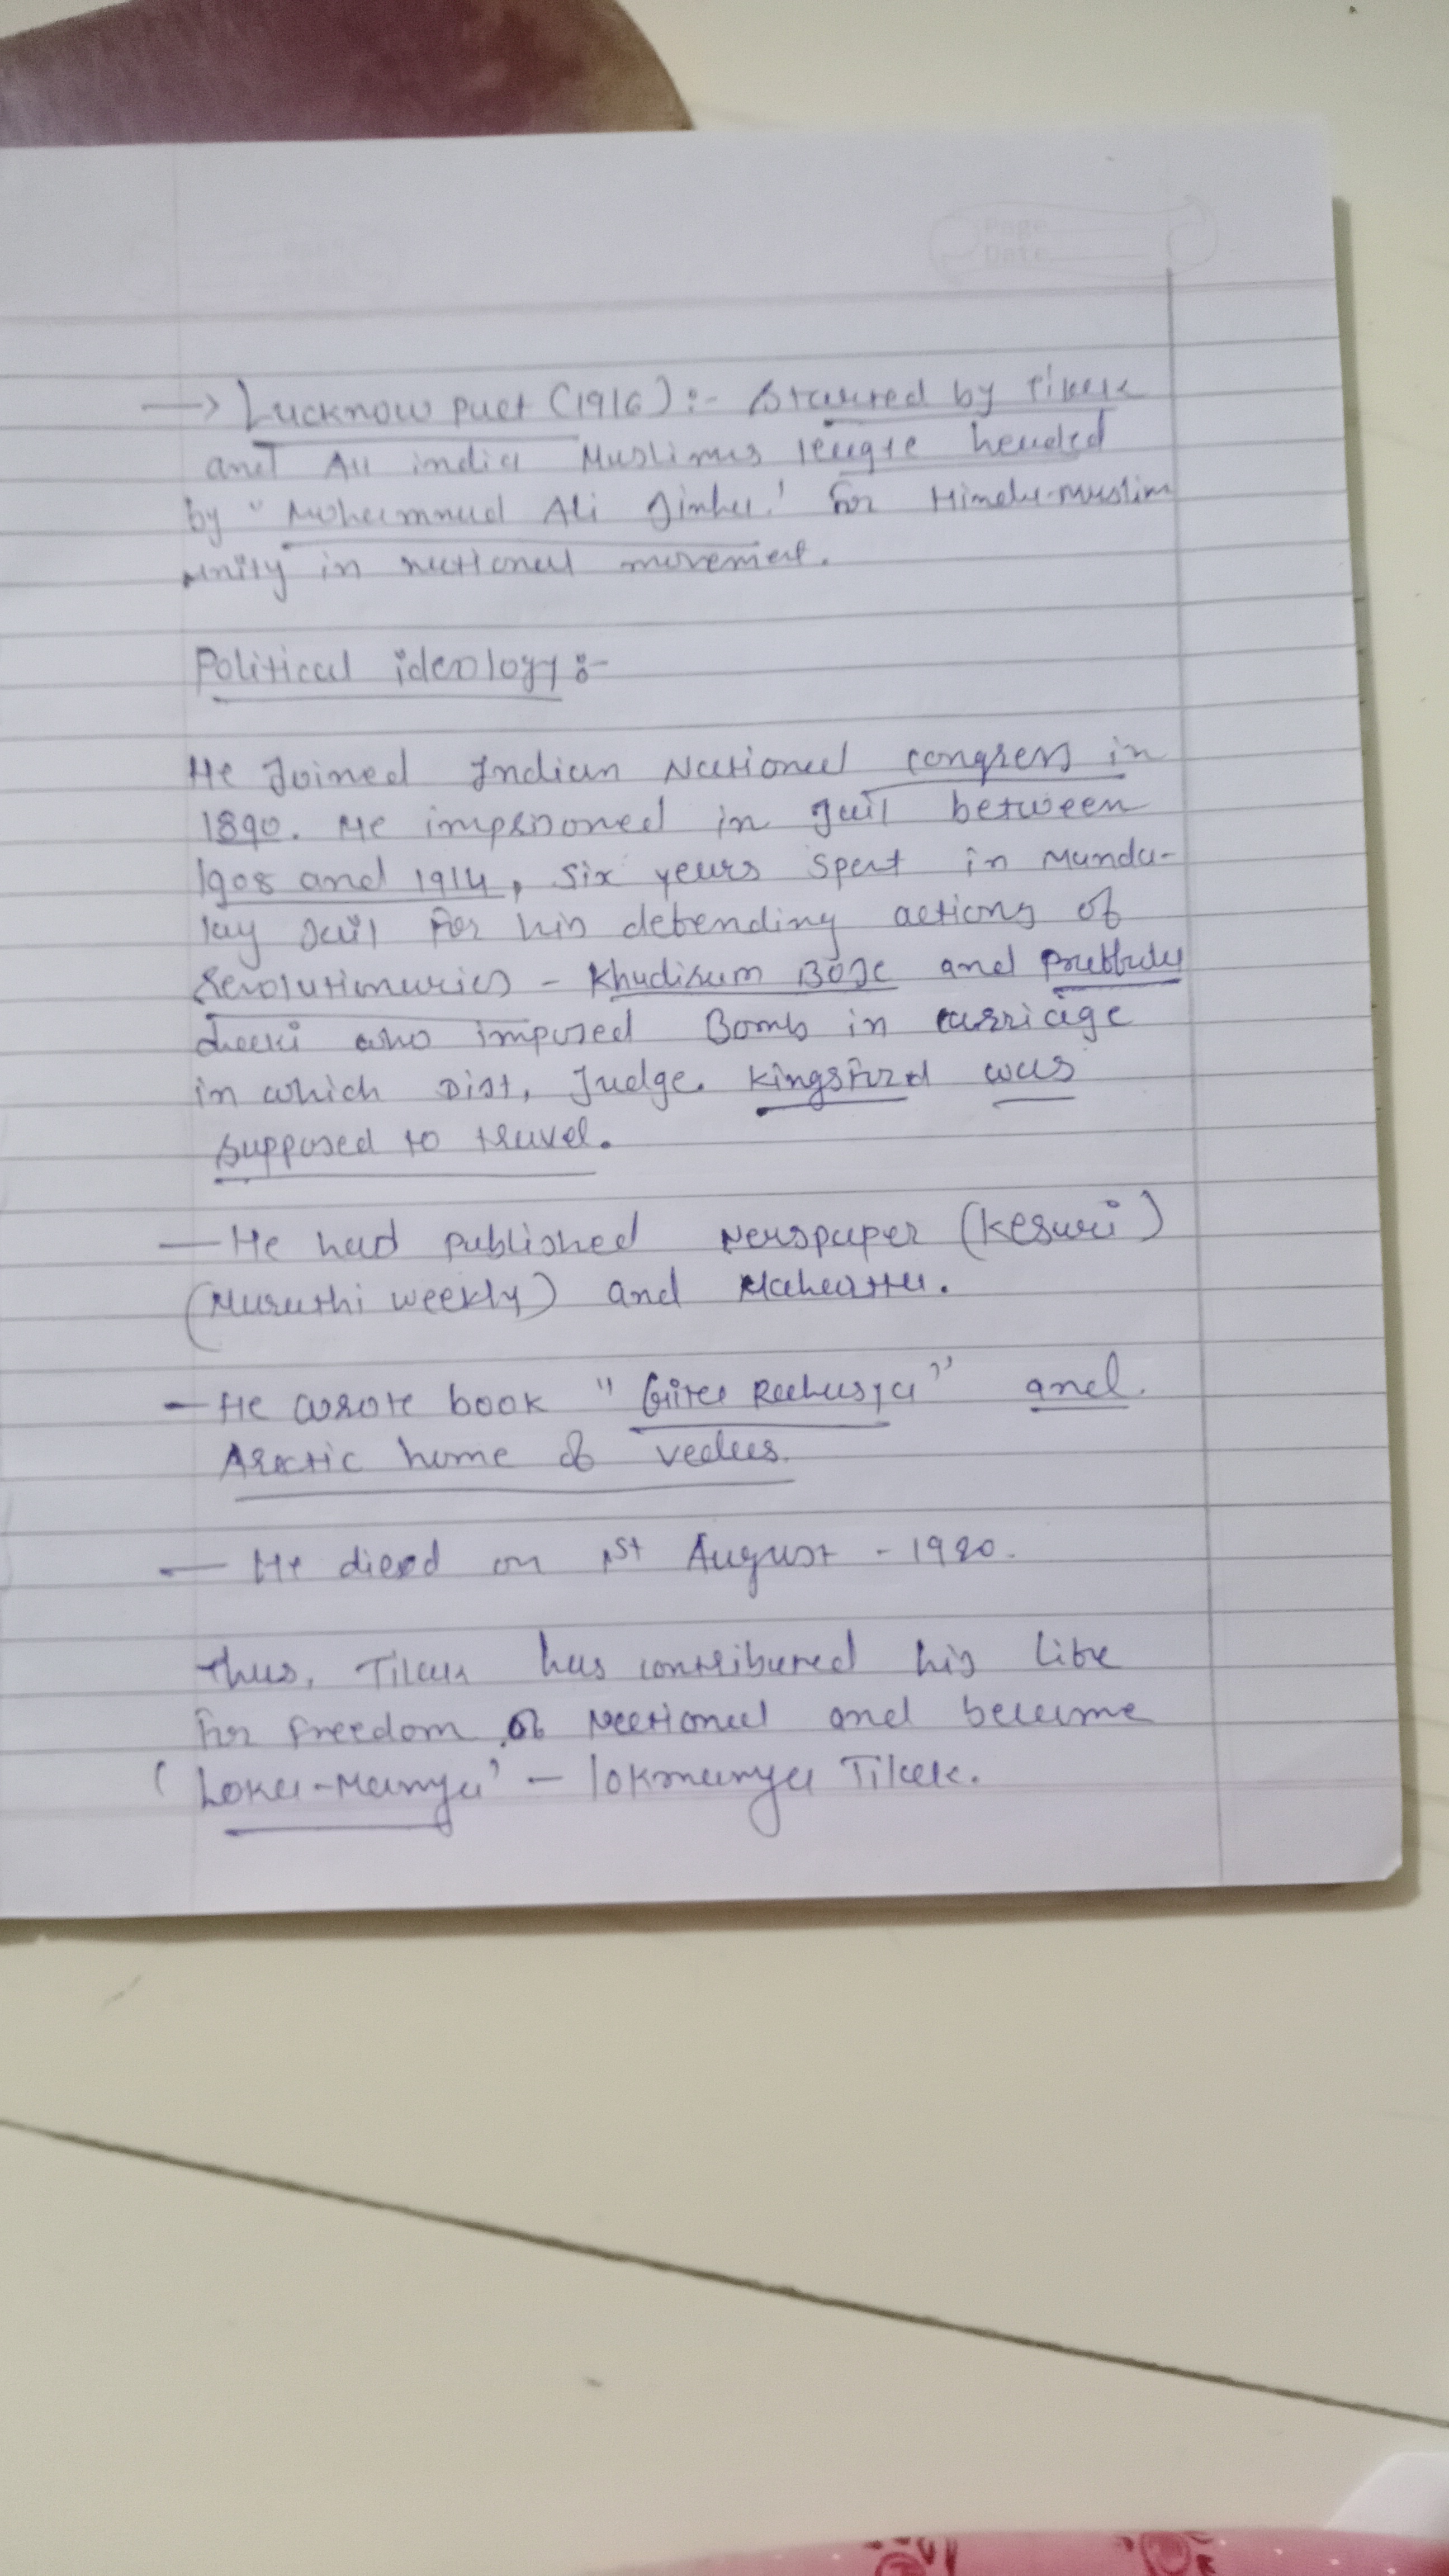 Page
Date
→ Lucknow pact (1916) :- Started by Tilak
and All india Muslims league headed
by "Mohammad Ali Jinha' for Hindu-Muslim
unity in national movement.
Political ideology :-
He Joined Indian National congress in
1890. He imprisoned in Jail between
1908 and 1914, six years spent in Manda-
lay Jail for his defending actions of
Revolutionaries - Khudiram Bose and Prafulla
chaki who imposed Bomb in carriage
in which Dist, Judge. Kingsford was
supposed to travel.
— He had published Newspaper (Kesari)
(Marathi weekly) and Mahratta.
- He wrote book "Gita Rahasya" and
Arctic home of vedas.
— He died on 1st August - 1920.
Thus, Tilak has contributed his life
for freedom of National and became
'Loka-Manya' - lokmanya Tilak.